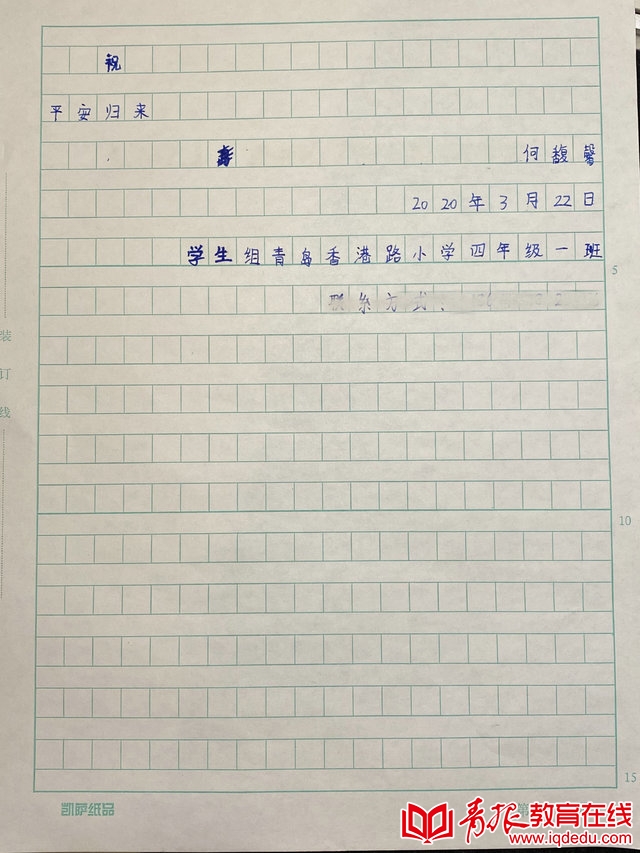 祝
平安归来
何馥馨
2020年3月22日
学生组青岛香港路小学四年级一班
5
联系方式:
装
订
线
10
15
凯萨纸品
第
青报教育在线
www.iqdedu.com